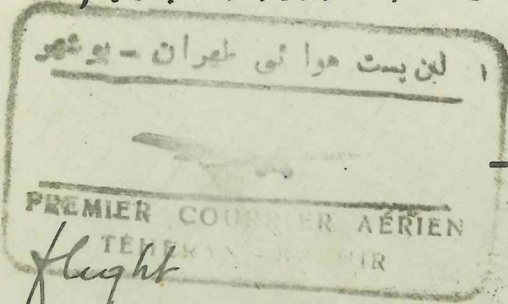 ا لین پست هوا ئی طهران – بوشهر
PREMIER COURRIER AÉRIEN
TÉHÉRAN
flight